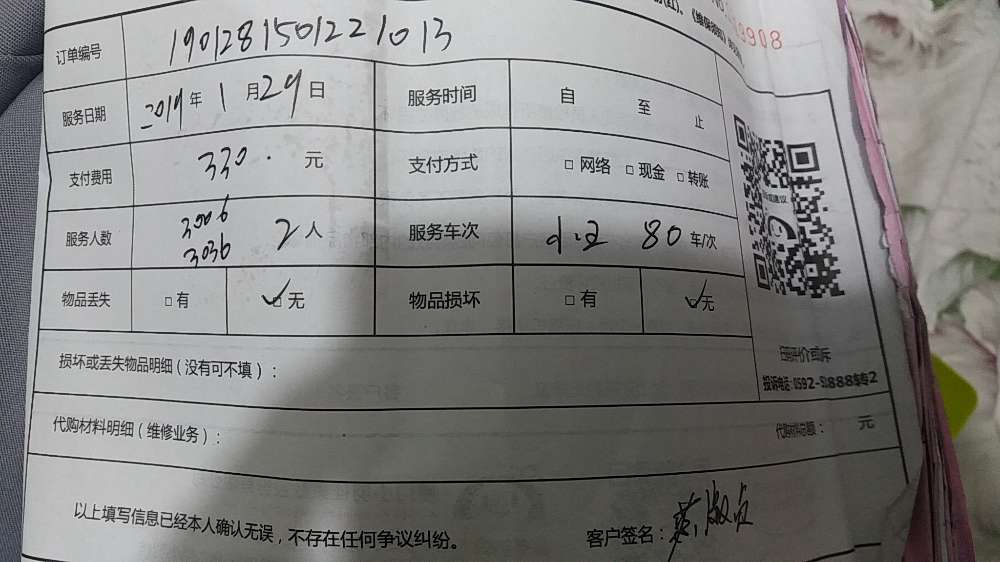 《维保须知》
9908
订单编号 1901281501221013
服务日期 2019年 1月29日 服务时间 自 至 止
支付费用 330. 元 支付方式 □ 网络 □ 现金 □ 转账
服务人数 3006 3036 2人 服务车次 80 车/次
物品丢失 □ 有 ✓□ 无 物品损坏 □ 有 ✓□ 无
损坏或丢失物品明细（没有可不填）：
投诉电话：0592-
代购材料明细（维修业务）： 元
以上填写信息已经本人确认无误，不存在任何争议纠纷。 客户签名：